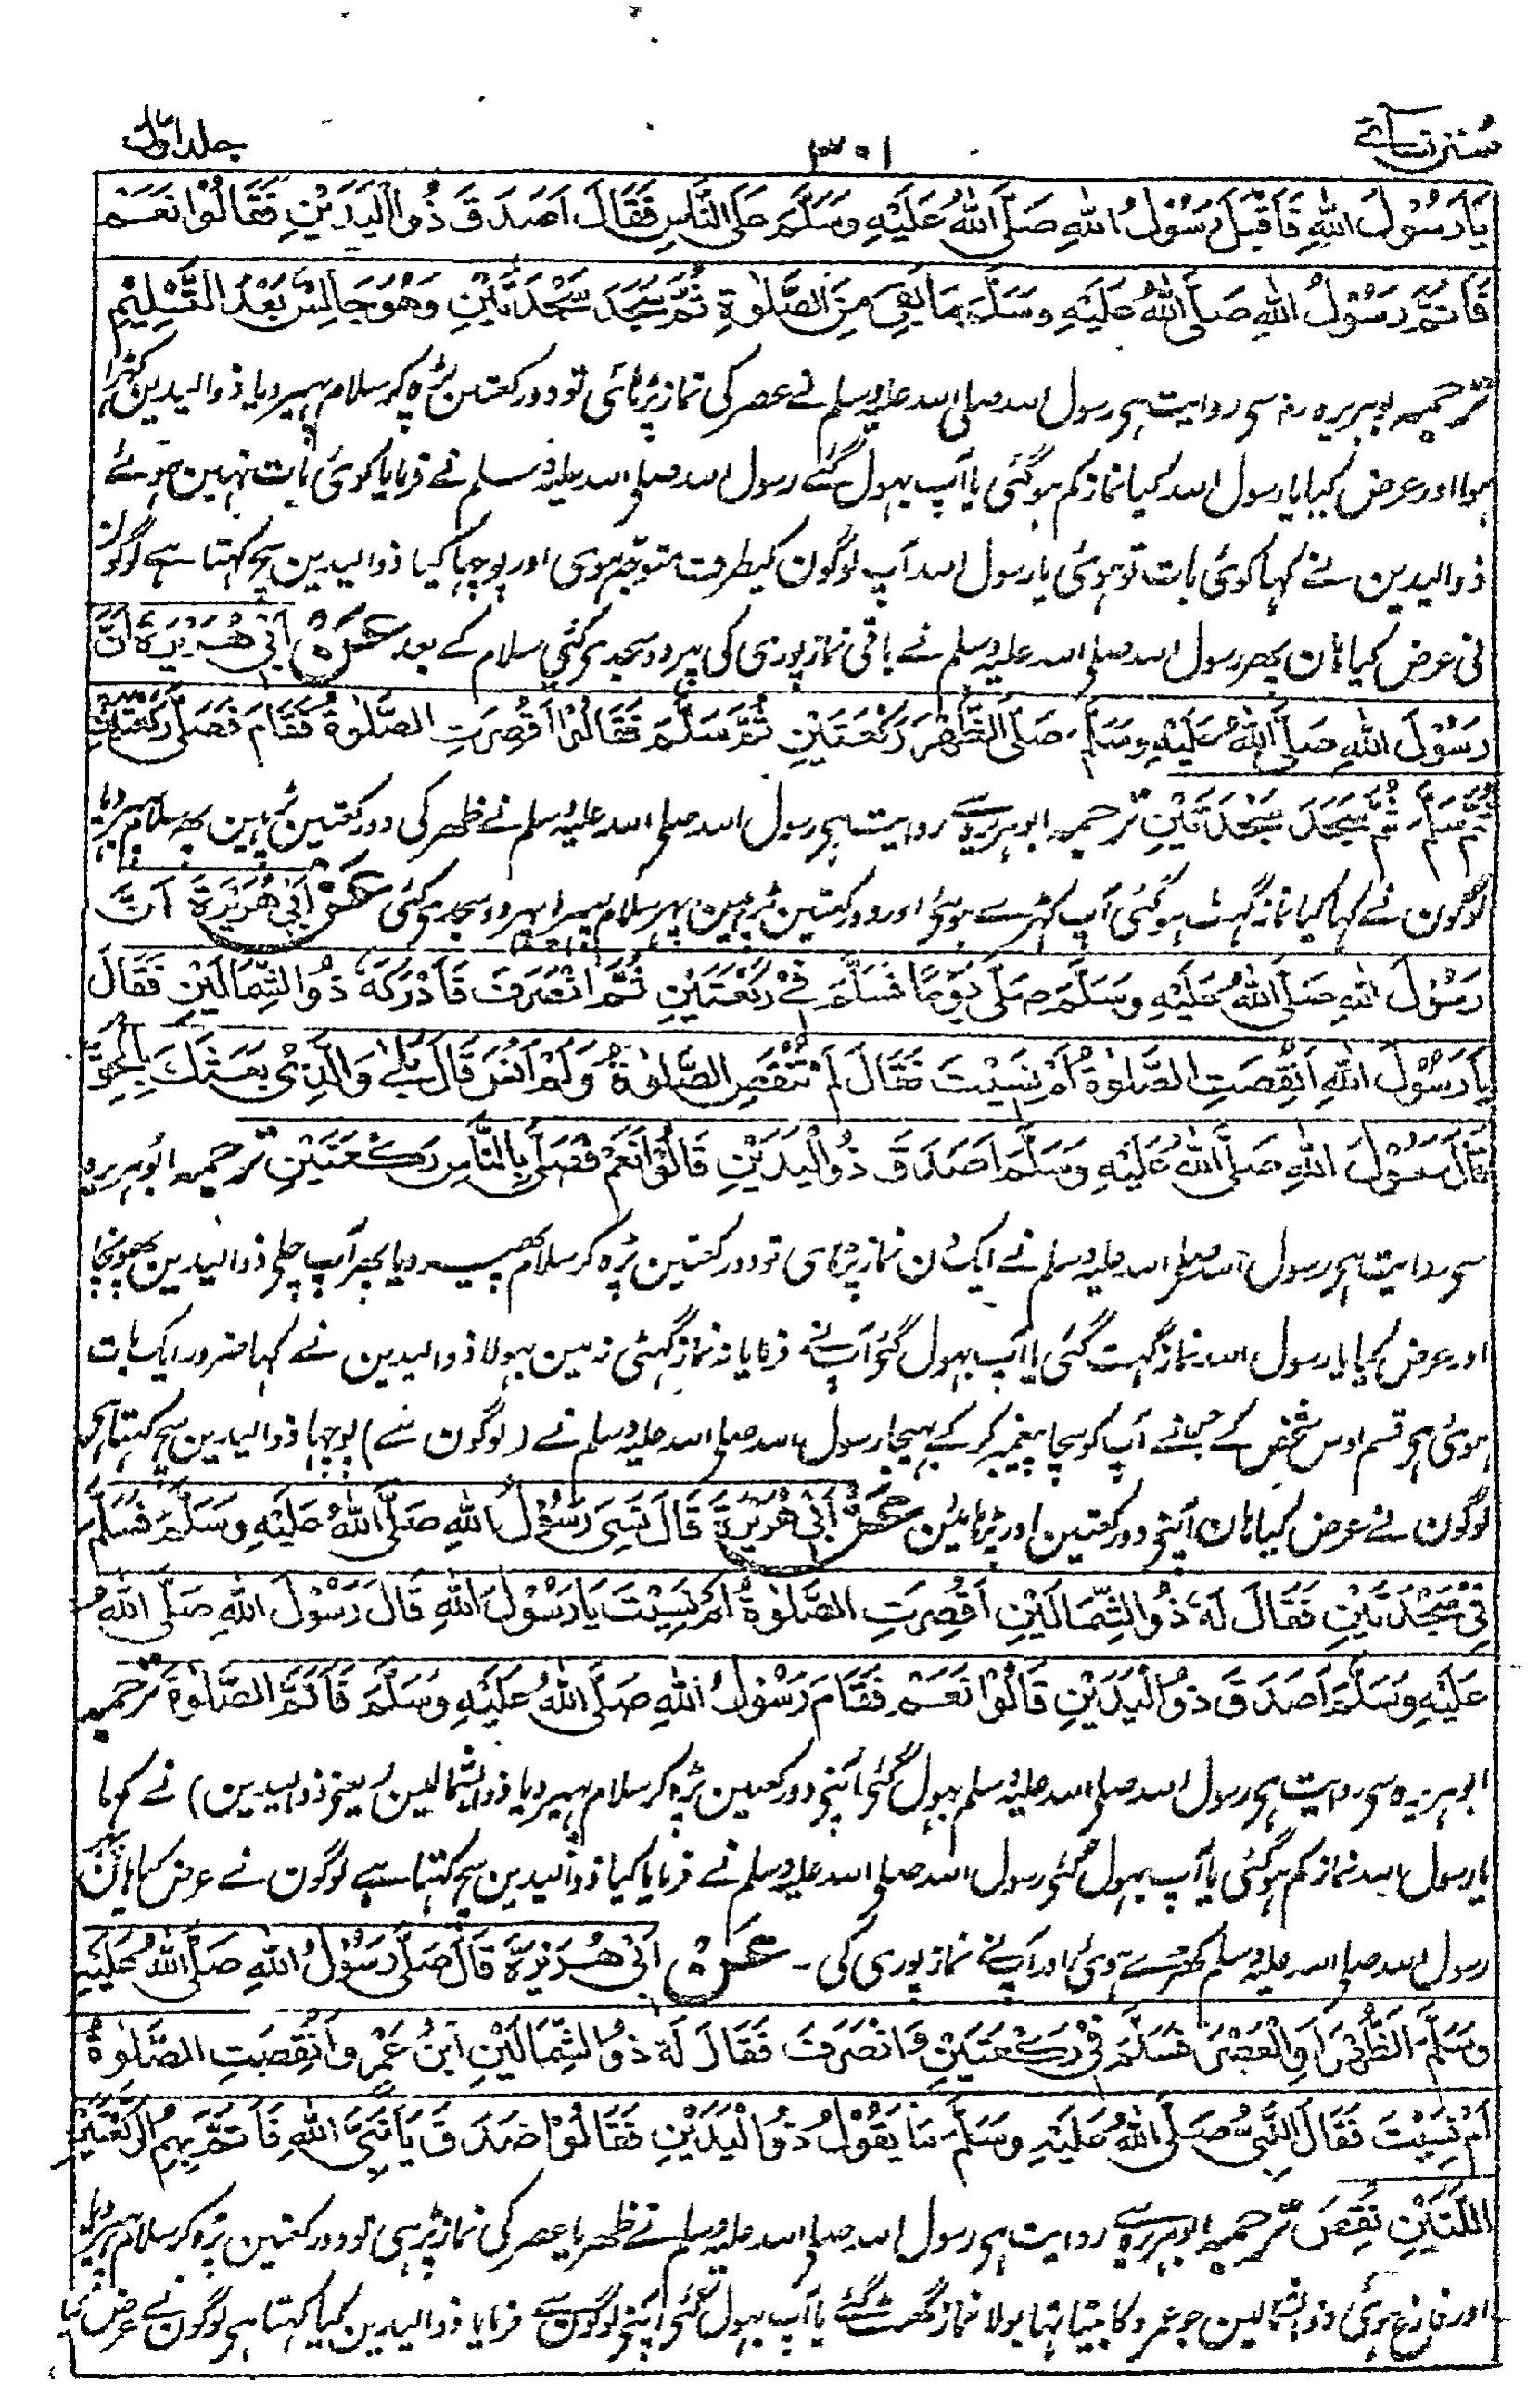 سنن نسائی ۳۰۱ جلد اول
يَا رَسُوْلَ اللهِ فَاَقْبَلَ رَسُوْلُ اللهِ صَلَّى اللهُ عَلَيْهِ وَسَلَّمَ عَلَى النَّاسِ فَقَالَ اَصَدَقَ ذُوالْيَدَيْنِ فَقَالُوْا نَعَمْ
فَاَتَمَّ رَسُوْلُ اللهِ صَلَّى اللهُ عَلَيْهِ وَسَلَّمَ مَا بَقِيَ مِنَ الصَّلٰوةِ ثُمَّ سَجَدَ سَجْدَتَيْنِ وَهُوَ جَالِسٌ بَعْدَ التَّسْلِيْمِ
ترجمہ ابوہریرہ رض سی روایت ہی رسول اللہ صلی اللہ علیہ وسلم نے عصر کی نماز پڑہائی تو دو رکعتین پڑہ کر سلام پہیر دیا ذوالیدین کہڑا
ہوا اور عرض کیا یا رسول اللہ کیا نماز کم ہوگئی یا آپ بہول گئے رسول اللہ صلی اللہ علیہ وسلم نے فرمایا کوئی بات نہین ہوئے
ذوالیدین نے کہا کوئی بات تو ہوئی یا رسول اللہ آپ لوگون کیطرف متوجہ ہوی اور پوچہا کیا ذوالیدین سچ کہتا ہے لوگون
نی عرض کیا ہان پہر رسول اللہ صلی اللہ علیہ وسلم نے باقی نماز پوری کی پہر دو سجدی کئی سلام کے بعد عَنْ اَبِيْ هُرَيْرَةَ اَنَّ
رَسُوْلَ اللهِ صَلَّى اللهُ عَلَيْهِ وَسَلَّمَ صَلَّى الظُّهْرَ رَكْعَتَيْنِ ثُمَّ سَلَّمَ فَقَالُوْا اَقُصِرَتِ الصَّلٰوةُ فَقَامَ فَصَلّٰى رَكْعَتَيْنِ
ثُمَّ سَلَّمَ ثُمَّ سَجَدَ سَجْدَتَيْنِ ترجمہ ابوہریرہ سے روایت ہی رسول اللہ صلی اللہ علیہ وسلم نے ظہر کی دو رکعتین پڑہین پہر سلام پہیر دیا
لوگون نے کہا کیا نماز گہٹ ہوگئی آپ کہڑے ہوئی اور دو رکعتین پڑہین پہر سلام پہیرا پہر دو سجدی کئی عَنْ اَبِيْ هُرَيْرَةَ اَنَّ
رَسُوْلَ اللهِ صَلَّى اللهُ عَلَيْهِ وَسَلَّمَ صَلّٰى يَوْمًا فَسَلَّمَ فِيْ رَكْعَتَيْنِ ثُمَّ انْصَرَفَ فَاَدْرَكَهٗ ذُوالشِّمَالَيْنِ فَقَالَ
يَا رَسُوْلَ اللهِ اَنُقِصَتِ الصَّلٰوةُ اَمْ نَسِيْتَ فَقَالَ لَمْ تُنْقَصِ الصَّلٰوةُ وَلَمْ اَنْسَ قَالَ بَلٰى وَالَّذِيْ بَعَثَكَ بِالْحَقِّ
قَالَ رَسُوْلُ اللهِ صَلَّى اللهُ عَلَيْهِ وَسَلَّمَ اَصَدَقَ ذُوالْيَدَيْنِ قَالُوْا نَعَمْ فَصَلّٰى بِالنَّاسِ رَكْعَتَيْنِ ترجمہ ابوہریرہ
سی روایت ہی رسول اللہ صلی اللہ علیہ وسلم نے ایک دن نماز پڑہای تو دو رکعتین پڑہ کر سلام پھیر دیا پھر آپ چلی ذوالیدین پھونچا
اور عرض کیا یا رسول اللہ نماز گہٹ گئی یا آپ بہول گئی آپ نے فرمایا نہ نماز گہٹی نہ مین بہولا ذوالیدین نے کہا ضرور ایک بات
ہوئی ہی قسم اوس شخص کے جسنے آپ کو سچا پیغمبر کر کے بہیجا رسول اللہ صلی اللہ علیہ وسلم نے (لوگون سے) پوچہا ذوالیدین سچ کہتا ہی
لوگون نے عرض کیا ہان آپنی دو رکعتین اور پڑہائین عَنْ اَبِيْ هُرَيْرَةَ قَالَ نَسِيَ رَسُوْلُ اللهِ صَلَّى اللهُ عَلَيْهِ وَسَلَّمَ فَسَلَّمَ
فِيْ سَجْدَتَيْنِ فَقَالَ لَهٗ ذُوالشِّمَالَيْنِ اَقُصِرَتِ الصَّلٰوةُ اَمْ نَسِيْتَ يَا رَسُوْلَ اللهِ قَالَ رَسُوْلُ اللهِ صَلَّى اللهُ
عَلَيْهِ وَسَلَّمَ اَصَدَقَ ذُوالْيَدَيْنِ قَالُوْا نَعَمْ فَقَامَ رَسُوْلُ اللهِ صَلَّى اللهُ عَلَيْهِ وَسَلَّمَ فَاَتَمَّ الصَّلٰوةَ ترجمہ
ابوہریرہ سی روایت ہی رسول اللہ صلی اللہ علیہ وسلم بہول گئی آپنی دو رکعتین پڑہ کر سلام پہیر دیا ذوالشمالین (یعنی ذوالیدین) نے کہا
یا رسول اللہ نماز کم ہوگئی یا آپ بہول گئی رسول اللہ صلی اللہ علیہ وسلم نے فرمایا کیا ذوالیدین سچ کہتا ہے لوگون نے عرض کیا ہان پہر
رسول اللہ صلی اللہ علیہ وسلم کھڑے ہوئی اور آپنے نماز پوری کی ۔ عَنْ اَبِيْ هُرَيْرَةَ قَالَ صَلّٰى رَسُوْلُ اللهِ صَلَّى اللهُ عَلَيْهِ
وَسَلَّمَ الظُّهْرَ اَوِ الْعَصْرَ فَسَلَّمَ فِيْ رَكْعَتَيْنِ وَانْصَرَفَ فَقَالَ لَهٗ ذُوالشِّمَالَيْنِ ابْنُ عَمْرٍو اَنُقِصَتِ الصَّلٰوةُ
اَمْ نَسِيْتَ فَقَالَ النَّبِيُّ صَلَّى اللهُ عَلَيْهِ وَسَلَّمَ مَا يَقُوْلُ ذُوالْيَدَيْنِ فَقَالُوْا صَدَقَ يَا نَبِيَّ اللهِ فَاَتَمَّ بِهِمُ الرَّكْعَتَيْنِ
اللَّتَيْنِ نَقَصَ ترجمہ ابوہریرہ سے روایت ہی رسول اللہ صلی اللہ علیہ وسلم نے ظہر یا عصر کی نماز پڑہی تو دو رکعتین پڑہ کر سلام پہیر دیا
اور فارغ ہوئی ذوالشمالین جو عمرو کا بیٹا تہا بولا نماز گہٹ گئے یا آپ بہول گئی آپنی لوگون سے فرمایا ذوالیدین کیا کہتا ہی لوگون نے عرض کیا